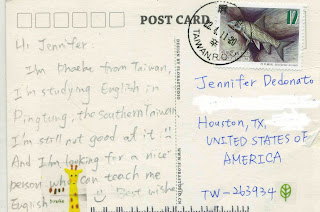 POST CARD
Hi, Jennifer:
I'm Phoebe from Taiwan,
I'm studying English in
Pingtung, the Southern Taiwan
I'm still not good at it :!
And I'm looking for a nice
person who can teach me
English. Best wishes
17
TAIWAN R.O.C.
Jennifer Dedonato
Houston, TX,
UNITED STATES OF
AMERICA
TW-263934